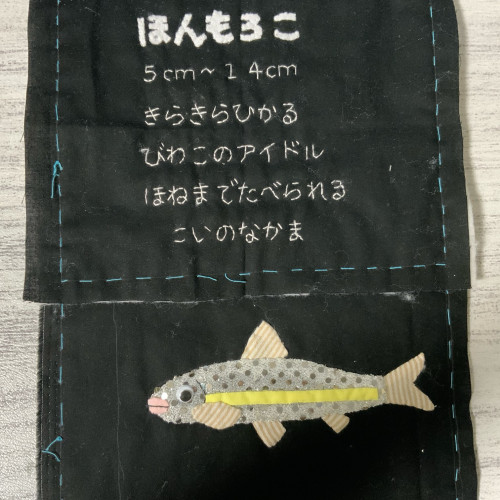 ほんもろこ
5cm～14cm
きらきらひかる
びわこのアイドル
ほねまでたべられる
こいのなかま